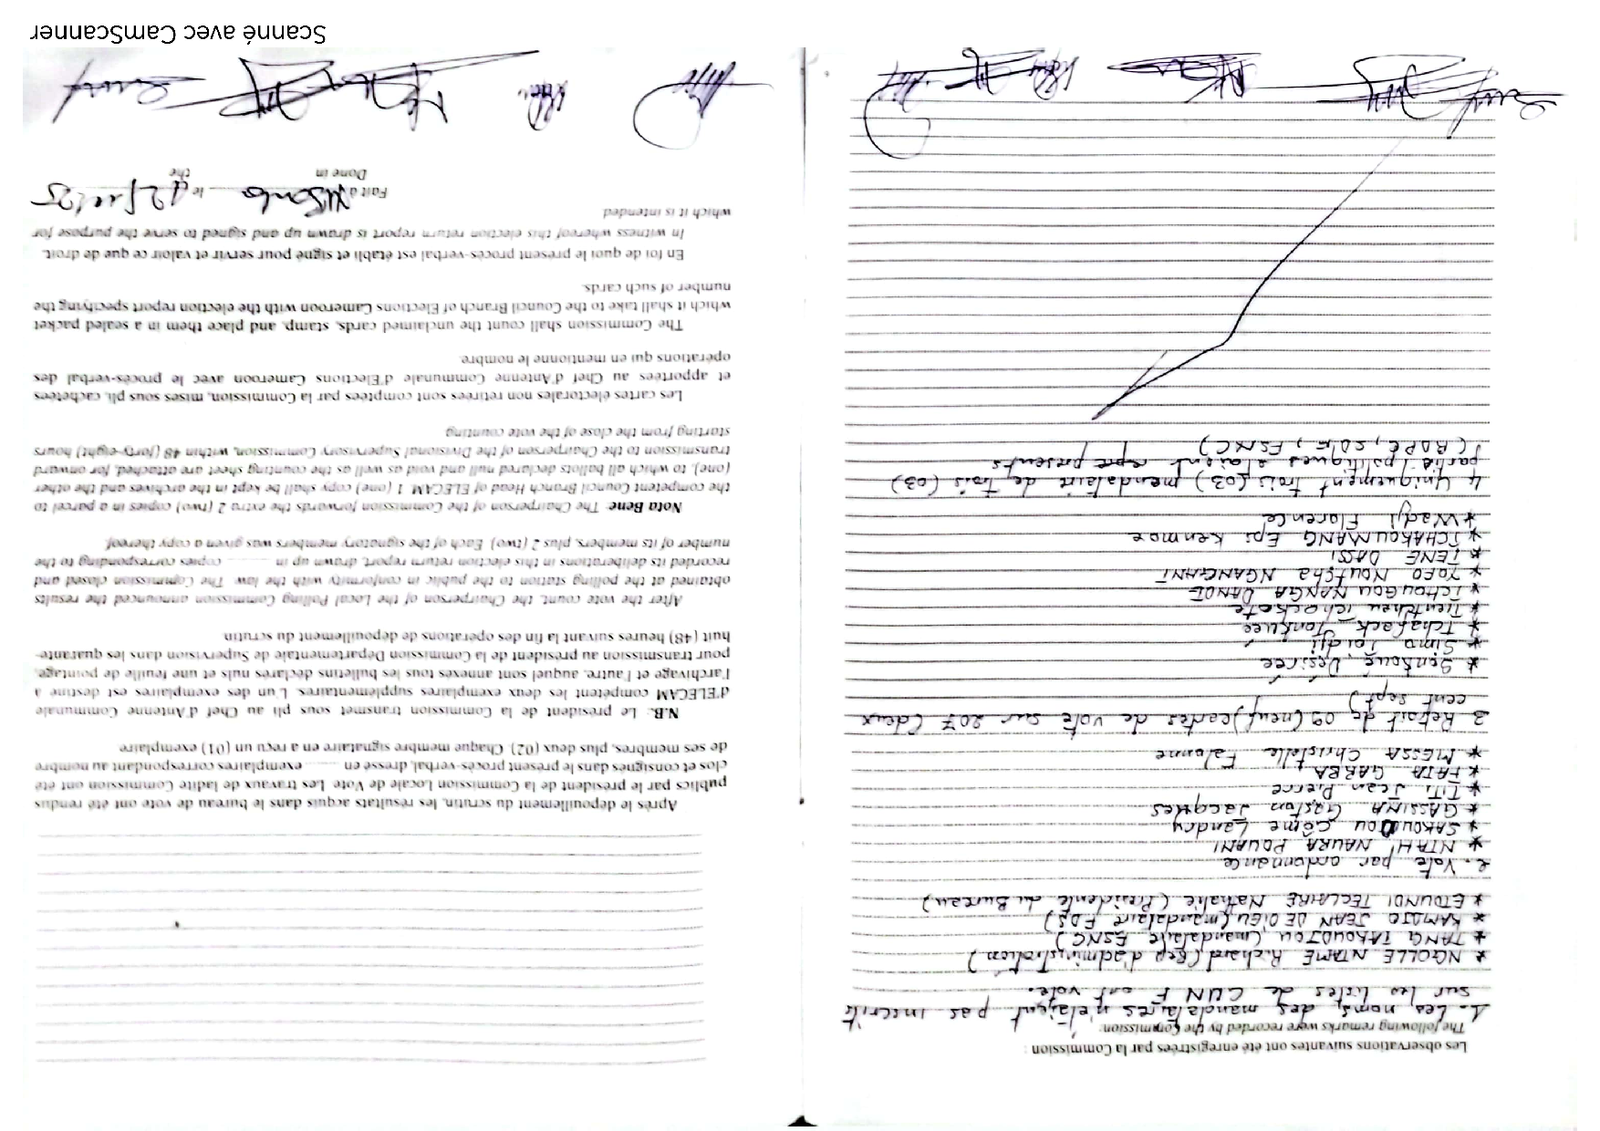 Les observations suivantes ont été enregistrées par la Commission :
The following remarks were recorded by the Commission:
1. Les noms des mandataires n'etaient pas inscrits
sur les listes de CUN F ont voté.
* NGOLLE NTAME Richard (Rep d'administration)
* TANG TAKOUDJOU (mandataire FSNC)
* KAMDJO JEAN DE DIEU (mandataire FDS)
* ETOUNDI TECLAIRE Nathalie (Présidente du Bureau)
2. Vote par ordonnance
* NTAH' NAURA POUANI
* SAKOUDOU Côme Landry
* GASSINA Gaston Jacques
* TITI Jean Pierre
* FATA GARBA
* MESSA Christelle Falonne
3 Retrait de 09 (neuf) cartes de vote sur 207 (deux
cent sept)
* Senkoue, Desirée
* Simo Joidji
* Tchafack Tonkuee
* Tientcheu
* TCHOUGOU NANGA DANOE
* YOFO Noutcha NGANGANNI
* TENE DASSI
* TCHAKOUMANG Epi Kenmoe
* Wadji Florence
4 Uniquement trois (03) mandataire de trois (03)
partis politiques etaient presents
(RDPC, SDF, FSNC)
Après le dépouillement du scrutin, les résultats acquis dans le bureau de vote ont été rendus
publics par le président de la Commission Locale de Vote. Les travaux de ladite Commission ont été
clos et consignés dans le présent procès-verbal, dressé en ........ exemplaires correspondant au nombre
de ses membres, plus deux (02). Chaque membre signataire en a reçu un (01) exemplaire
N.B. Le président de la Commission transmet sous pli au Chef d'Antenne Communale
d'ELECAM compétent les deux exemplaires supplémentaires. L'un des exemplaires est destiné à
l'archivage et l'autre, auquel sont annexés tous les bulletins déclarés nuls et une feuille de pointage,
pour transmission au président de la Commission Départementale de Supervision dans les quarante-
huit (48) heures suivant la fin des opérations de dépouillement du scrutin
After the vote count, the Chairperson of the Local Polling Commission announced the results
obtained at the polling station to the public in conformity with the law. The Commission closed and
recorded its deliberations in this election return report, drawn up in ........ copies corresponding to the
number of its members, plus 2 (two) Each of the signatory members was given a copy thereof
Nota Bene The Chairperson of the Commission forwards the extra 2 (two) copies in a parcel to
the competent Council Branch Head of ELECAM. 1 (one) copy shall be kept in the archives and the other
(one), to which all ballots declared null and void as well as the counting sheet are attached, for onward
transmission to the Chairperson of the Divisional Supervisory Commission, within 48 (forty-eight) hours
starting from the close of the vote counting
Les cartes électorales non retirées sont comptées par la Commission, mises sous pli, cachetées
et apportées au Chef d'Antenne Communale d'Elections Cameroon avec le procès-verbal des
opérations qui en mentionne le nombre.
The Commission shall count the unclaimed cards, stamp, and place them in a sealed packet
which it shall take to the Council Branch of Elections Cameroon with the election report specifying the
number of such cards.
En foi de quoi le présent procès-verbal est établi et signé pour servir et valoir ce que de droit.
In witness whereof this election return report is drawn up and signed to serve the purpose for
which it is intended
Fait à le
Done in the
Scanné avec CamScanner